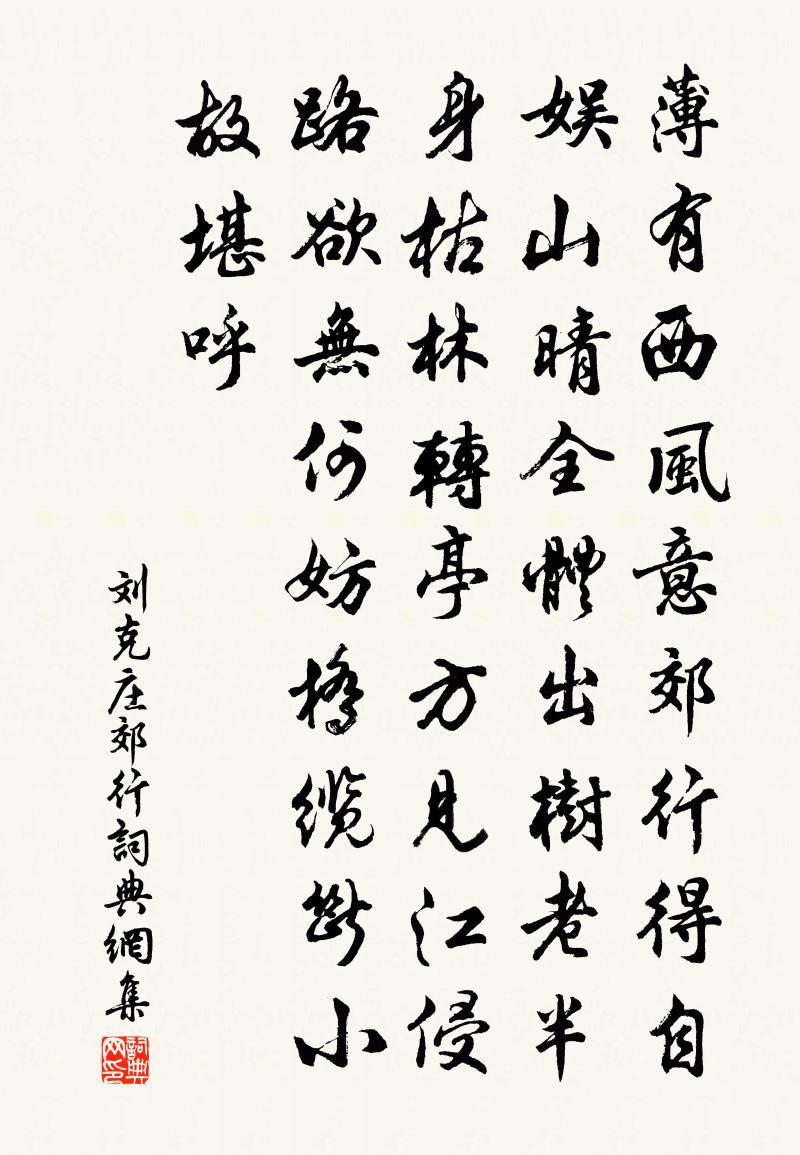 薄有西風意郊行得自
娯山晴全體出樹老半
身枯林轉亭方見江侵
路欲無何妨橋缆斷小
故堪呼
刘克庄郊行詞典網集
詞典网印